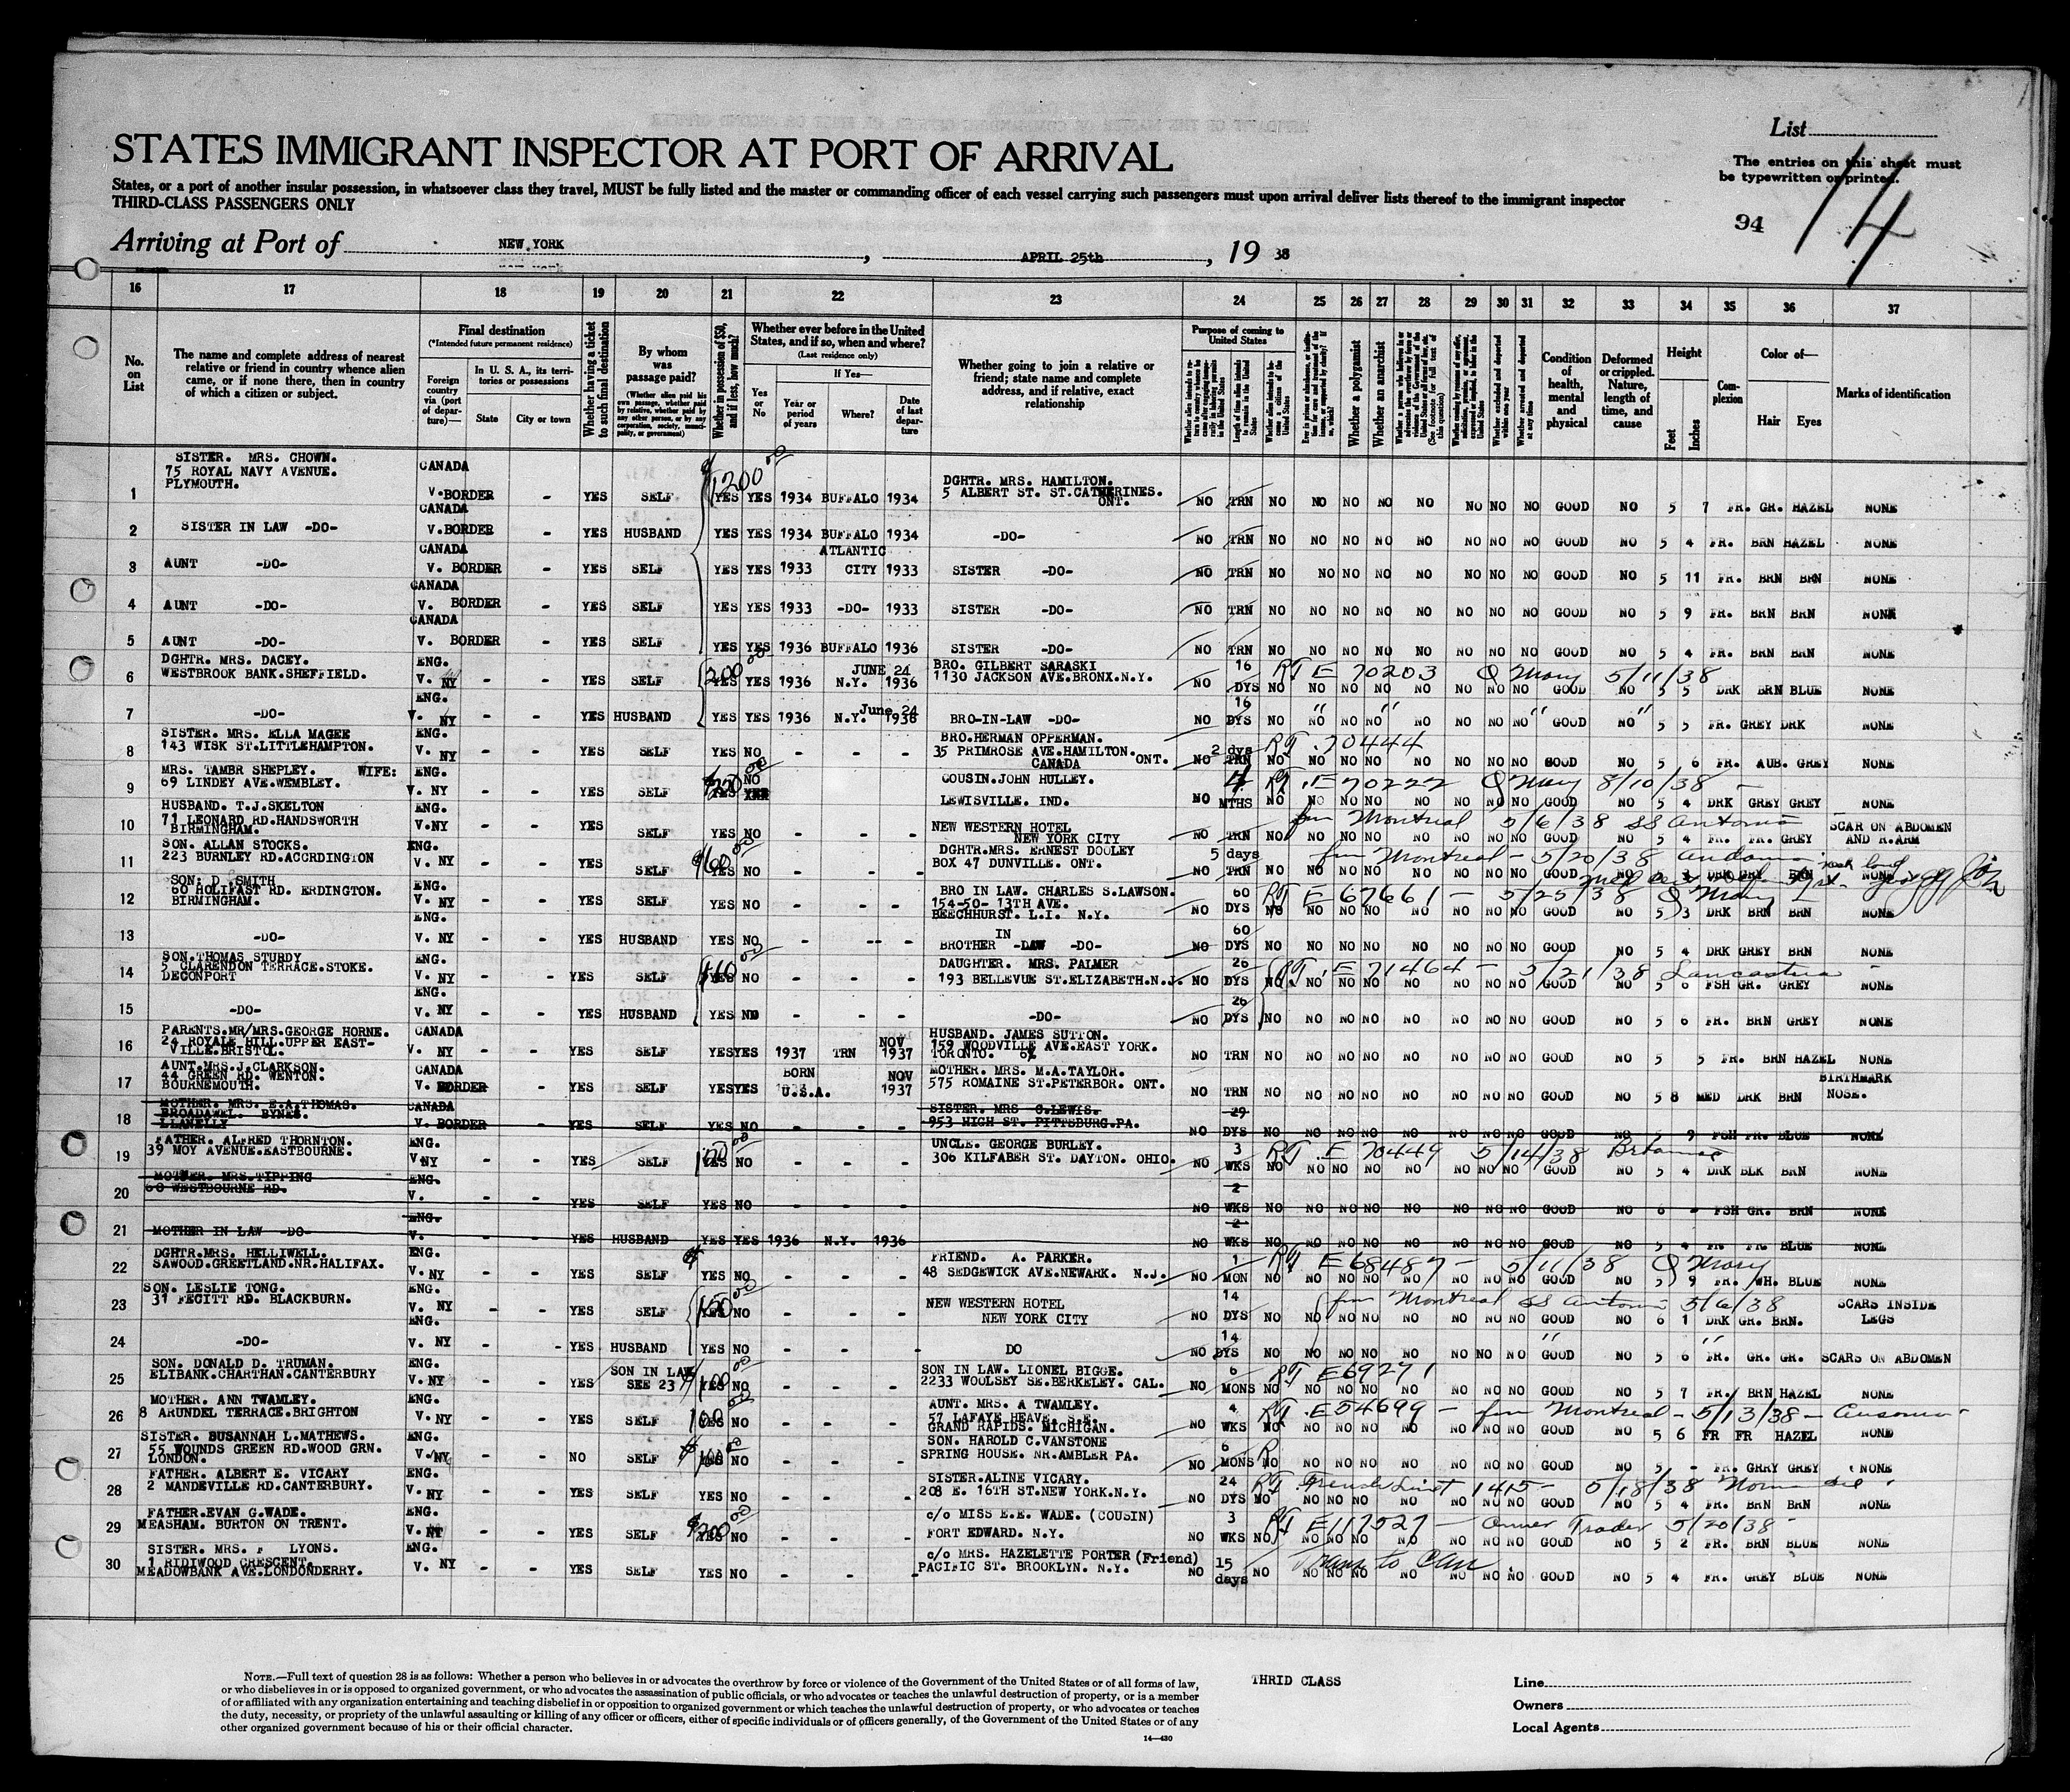 List
STATES IMMIGRANT INSPECTOR AT PORT OF ARRIVAL
The entries on this sheet must
be typewritten or printed.
States, or a port of another insular possession, in whatsoever class they travel, MUST be fully listed and the master or commanding officer of each vessel carrying such passengers must upon arrival deliver lists thereof to the immigrant inspector
THIRD-CLASS PASSENGERS ONLY
94 14
Arriving at Port of NEW YORK, APRIL 25th, 19 38
16 17 18 19 20 21 22 23 24 25 26 27 28 29 30 31 32 33 34 35 36 37
No. on List
The name and complete address of nearest relative or friend in country whence alien came, or if none there, then in country of which a citizen or subject.
Final destination
(*Intended future permanent residence)
Foreign country via (port of departure)—
In U. S. A., its territories or possessions
State City or town
Whether having a ticket to such final destination
By whom was passage paid?
(Whether alien paid his own passage, whether paid by relative, whether paid by any other person, or by any corporation, society, municipality, or government)
Whether in possession of $50, and if less, how much?
Whether ever before in the United States, and if so, when and where?
(Last residence only)
Yes or No
If Yes—
Year or period of years Where? Date of last departure
Whether going to join a relative or friend; state name and complete address, and if relative, exact relationship
Purpose of coming to United States
Length of time alien intends to remain in the United States
Whether alien intends to become a citizen of the United States
Whether a polygamist
Whether an anarchist
Condition of health, mental and physical
Deformed or crippled. Nature, length of time, and cause
Height
Feet Inches
Complexion
Color of—
Hair Eyes
Marks of identification
1 SISTER. MRS. CHOWN. 75 ROYAL NAVY AVENUE. PLYMOUTH. CANADA V.BORDER - YES SELF $200.00 YES YES 1934 BUFFALO 1934 DGHTR. MRS. HAMILTON. 5 ALBERT ST. ST.CATHERINES. ONT. NO TRN NO NO NO NO NO NO NO NO GOOD NO 5 7 FR. GR. HAZEL NONE
2 SISTER IN LAW -DO- CANADA V.BORDER - YES HUSBAND YES YES 1934 BUFFALO 1934 -DO- NO TRN NO NO NO NO NO NO NO NO GOOD NO 5 4 FR. BRN HAZEL NONE
3 AUNT -DO- CANADA V. BORDER - YES SELF YES YES 1933 ATLANTIC CITY 1933 SISTER -DO- NO TRN NO NO NO NO NO NO NO NO GOOD NO 5 11 FR. BRN BRN NONE
4 AUNT -DO- CANADA V. BORDER - YES SELF YES YES 1933 -DO- 1933 SISTER -DO- NO TRN NO NO NO NO NO NO NO NO GOOD NO 5 9 FR. BRN BRN NONE
5 AUNT -DO- CANADA V. BORDER - YES SELF YES YES 1936 BUFFALO 1936 SISTER -DO- NO TRN NO NO NO NO NO NO NO NO GOOD NO 5 4 FR. BRN BRN NONE
6 DGHTR. MRS. DACEY. WESTBROOK BANK.SHEFFIELD. ENG. V. NY - - YES SELF 200.00 YES YES 1936 N.Y. JUNE 24 1936 BRO. GILBERT SARASKI 1130 JACKSON AVE.BRONX.N.Y. NO 16 DYS NO RT E 70203 Q Mary 5/11/38 NO NO NO NO NO NO NO GOOD NO 5 5 DRK BRN BLUE NONE
7 -DO- ENG. V. NY - - YES HUSBAND YES YES 1936 N.Y. June 24 1936 BRO-IN-LAW -DO- NO 16 DYS NO " " " " NO NO NO NO NO NO NO GOOD NO 5 5 FR. GREY DRK NONE
8 SISTER. MRS. ELLA MAGEE 143 WISK ST.LITTLEHAMPTON. ENG. V. NY - - YES SELF YES NO - - - BRO.HERMAN OPPERMAN. 35 PRIMROSE AVE.HAMILTON. ONT. CANADA NO 2 dys TRN NO RT 70444 NO NO NO NO NO NO NO GOOD NO 5 6 FR. AUB. GREY NONE
9 MRS. TAMBR SHEPLEY. WIFE: 69 LINDEY AVE.WEMBLEY. ENG. V. NY - - YES SELF YES NO YES COUSIN.JOHN HULLEY. LEWISVILLE. IND. NO 4 MTHS NO RT E70222 Q Mary 8/10/38 NO NO NO NO NO NO NO GOOD NO 5 4 DRK GREY GREY NONE
10 HUSBAND. T.J.SKELTON 71 LEONARD RD.HANDSWORTH BIRMINGHAM. ENG. V.NY - - YES SELF YES NO - - - NEW WESTERN HOTEL NEW YORK CITY NO TRN NO from Montreal 5/6/38 SS Antonia NO NO NO NO NO NO NO GOOD NO 5 4 FR. FR. GREY SCAR ON ABDOMEN AND R.ARM
11 SON. ALLAN STOCKS. 223 BURNLEY RD.ACCRDINGTON ENG. V. NY - - YES SELF $60.00 YES NO - - - DGHTR.MRS. ERNEST DOOLEY BOX 47 DUNVILLE. ONT. NO 5 days TRN NO from Montreal - 5/20/38 NO NO NO NO NO NO NO GOOD NO DRK GRY BRN NONE
12 SON: D SMITH 60 HOLIFAST RD. ERDINGTON. BIRMINGHAM. ENG. V. NY - - YES SELF YES NO - - - BRO IN LAW. CHARLES S.LAWSON. 154-50- 13TH AVE. BEECHHURST. L.I. N.Y. NO 60 DYS NO RT E 67661 - 5/25/38 Q Mary NO NO NO NO NO NO NO GOOD NO 5 3 DRK BRN BRN NONE
13 -DO- ENG. V. NY - - YES HUSBAND YES NO - -- - BROTHER IN -LAW -DO- NO 60 DYS NO NO NO NO NO NO NO NO GOOD NO 5 4 DRK GREY BRN NONE
14 SON.THOMAS STURDY 5 CLARENDON TERRACE.STOKE. DECONPORT ENG. V. NY - - YES SELF YES NO - - - DAUGHTER. MRS. PALMER 193 BELLEVUE ST.ELIZABETH.N.J. NO 26 DYS NO RT E 71464 - 5/21/38 Lancastria NO NO NO NO NO NO NO GOOD NO 5 6 FSH GR. GREY NONE
15 -DO- ENG. V. NY - - YES HUSBAND YES NO - - - -DO- NO 26 DYS NO NO NO NO NO NO NO GOOD NO 5 6 FR. BRN GREY NONE
16 PARENTS.MR/MRS.GEORGE HORNE. 24 ROYALE HILL.UPPER EAST- VILLE.BRISTOL. CANADA V. NY - - YES SELF YES YES 1937 TRN NOV 1937 HUSBAND. JAMES SUTTON. 159 WOODVILLE AVE.EAST YORK. TORONTO. 6% NO TRN NO NO NO NO NO NO NO NO GOOD NO 5 5 FR. BRN HAZEL NONE
17 AUNT.MRS.J.CLARKSON. 44 GREEN RD. WENTON. BOURNEMOUTH. CANADA V. BORDER - YES SELF YES YES BORN U.S.A. NOV 1937 MOTHER. MRS. M.A.TAYLOR. 575 ROMAINE ST.PETERBOR. ONT. NO TRN NO NO NO NO NO NO NO NO GOOD NO 5 8 MED DRK BRN BIRTHMARK NOSE.
18 MOTHER. MRS. E.A.THOMAS. BROADAWEL. BYNES. LLANELLY CANADA V. BORDER - YES SELF YES NO - - - SISTER. MRS C.LEWIS. 953 HIGH ST. PITTSBURG.PA. NO 29 DYS NO NO NO NO NO NO NO NO GOOD NO 5 9 FSH FR. BLUE NONE
19 FATHER. ALFRED THORNTON. 39 MOY AVENUE.EASTBOURNE. ENG. V.NY - - YES SELF 100.00 YES NO - - - UNCLE. GEORGE BURLEY. 306 KILFABER ST. DAYTON. OHIO. NO 3 WKS NO RT E 70449 5/14/38 NO NO NO NO NO NO NO GOOD NO 5 4 DRK BLK BRN NONE
20 MOTHER. MRS.TIPPING 60 WESTBOURNE RD. ENG. V. YES SELF YES NO NO 2 WKS NO NO NO NO NO NO NO NO GOOD NO 6 - FSH GR. BRN NONE
21 MOTHER IN LAW -DO- ENG. V. YES HUSBAND YES YES 1936 N.Y. 1936 NO 2 WKS NO NO NO NO NO NO NO NO GOOD NO 5 4 FR. FR. BLUE NONE
22 DGHTR.MRS. HELLIWELL. SAWOOD.GREETLAND.NR.HALIFAX. ENG. V. NY - - YES SELF $ YES NO - - - FRIEND. A. PARKER. 48 SEDGEWICK AVE.NEWARK. N.J. NO 1 MON NO RT E68487 - 5/11/38 Q Mary NO NO NO NO NO NO NO GOOD NO 5 9 FR. WH. BLUE NONE
23 SON. LESLIE TONG. 31 FECITT RD. BLACKBURN. ENG. V. NY - - YES SELF 150.00 YES NO - - - NEW WESTERN HOTEL NEW YORK CITY NO 14 DYS NO from Montreal SS Antonia 5/6/38 NO NO NO NO NO NO NO GOOD NO 6 1 DRK GR. BRN. SCARS INSIDE LEGS
24 -DO- ENG. V. NY - - YES HUSBAND YES NO - - - DO NO 14 DYS NO " " NO NO NO NO NO NO NO GOOD NO 5 6 FR. GR. GR. SCARS ON ABDOMEN
25 SON. DONALD D. TRUMAN. ELIBANK.CHARTHAN.CANTERBURY ENG. V. NY - - YES SON IN LAW SEE 23 100.00 YES NO - - - SON IN LAW. LIONEL BIGGE. 2233 WOOLSEY SE.BERKELEY. CAL. NO 6 MONS NO RT E69271 NO NO NO NO NO NO NO GOOD NO 5 7 FR. BRN HAZEL NONE
26 MOTHER. ANN TWAMLEY. 8 ARUNDEL TERRACE.BRIGHTON ENG. V.NY - - YES SELF 100.00 YES NO - - - AUNT. MRS. A TWAMLEY. 57 LAFAYE HEAVE. S.E. GRAND RAPIDS. MICHIGAN. NO 4 WKS NO RT E54699 - from Montreal - 5/13/38 - NO NO NO NO NO NO NO GOOD NO 5 6 FR FR HAZEL NONE
27 SISTER. SUSANNAH L.MATHEWS. 55 WOUNDS GREEN RD.WOOD GRN. LONDON. ENG. V.NY - - NO SELF $100.00 YES NO - - - SON. HAROLD C.VANSTONE SPRING HOUSE. NR.AMBLER PA. NO 6 MONS NO R NO NO NO NO NO NO NO GOOD NO 5 - FR. GRRY GREY NONE
28 FATHER. ALBERT E. VICARY 2 MANDEVILLE RD.CANTERBURY. ENG. V. NY - - YES SELF YES NO - - - SISTER.ALINE VICARY. 208 E. 16TH ST.NEW YORK.N.Y. NO 24 DYS NO RT French Line 1415 - 5/18/38 Normandie NO NO NO NO NO NO NO GOOD NO 5 4 FR. BRN BRN NONE
29 FATHER.EVAN G.WADE. MEASHAM. BURTON ON TRENT. ENG. V. NY - - YES SELF $200.00 YES NO - - - c/o MISS E.E. WADE. (COUSIN) FORT EDWARD. N.Y. NO 3 WKS NO RT E117527 - Amer Trader 5/20/38 NO NO NO NO NO NO NO GOOD NO 5 2 FR. BRN BLUE NONE
30 SISTER. MRS. F LYONS. 1 RIDIWOOD CRESCENT. MEADOWBANK AVE.LONDONDERRY. ENG. V. NY - - YES SELF YES NO - - - c/o MRS. HAZELETTE PORTER (Friend) PACIFIC ST. BROOKLYN. N.Y. NO 15 days NO Trans to Can NO NO NO NO NO NO NO GOOD NO 5 4 FR. GREY BLUE NONE
NOTE.—Full text of question 28 is as follows: Whether a person who believes in or advocates the overthrow by force or violence of the Government of the United States or of all forms of law,
or who disbelieves in or is opposed to organized government, or who advocates the assassination of public officials, or who advocates or teaches the unlawful destruction of property, or is a member
of or affiliated with any organization entertaining and teaching disbelief in or opposition to organized government or which teaches the unlawful destruction of property, or who advocates or teaches
the duty, necessity, or propriety of the unlawful assaulting or killing of any officer or officers, either of specific individuals or of officers generally, of the Government of the United States or of any
other organized government because of his or their official character.
14—430
THRID CLASS
Line
Owners
Local Agents